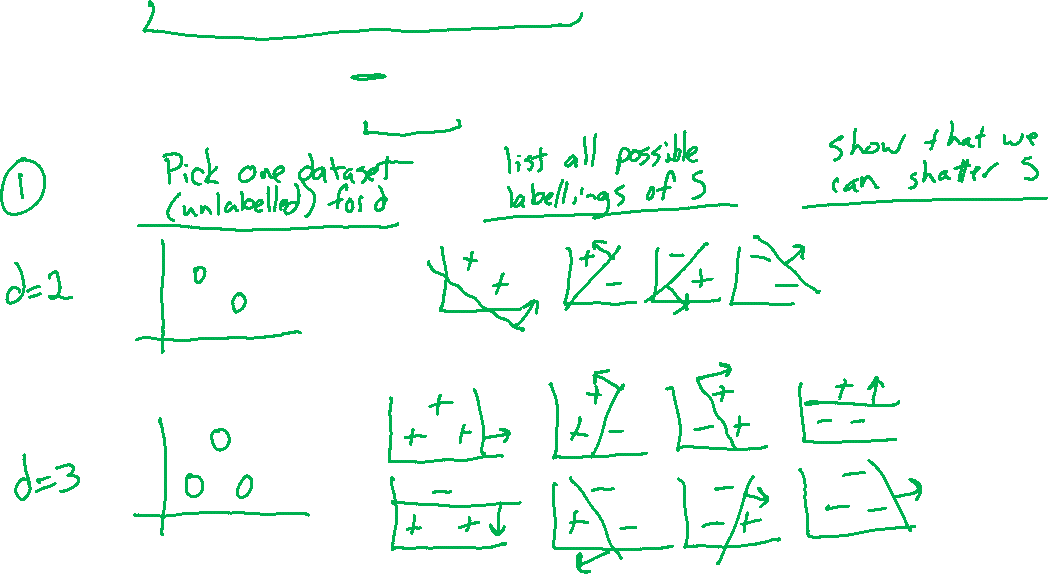 ①
Pick one dataset
(unlabelled) for d
list all possible
labellings of S
show that we
can shatter S
d=2
o
o
+ +
+ -
- +
- -
d=3
o
o o
+
+ +
+
+ -
+
- +
+
- -
-
+ +
-
+ -
-
- +
-
- -